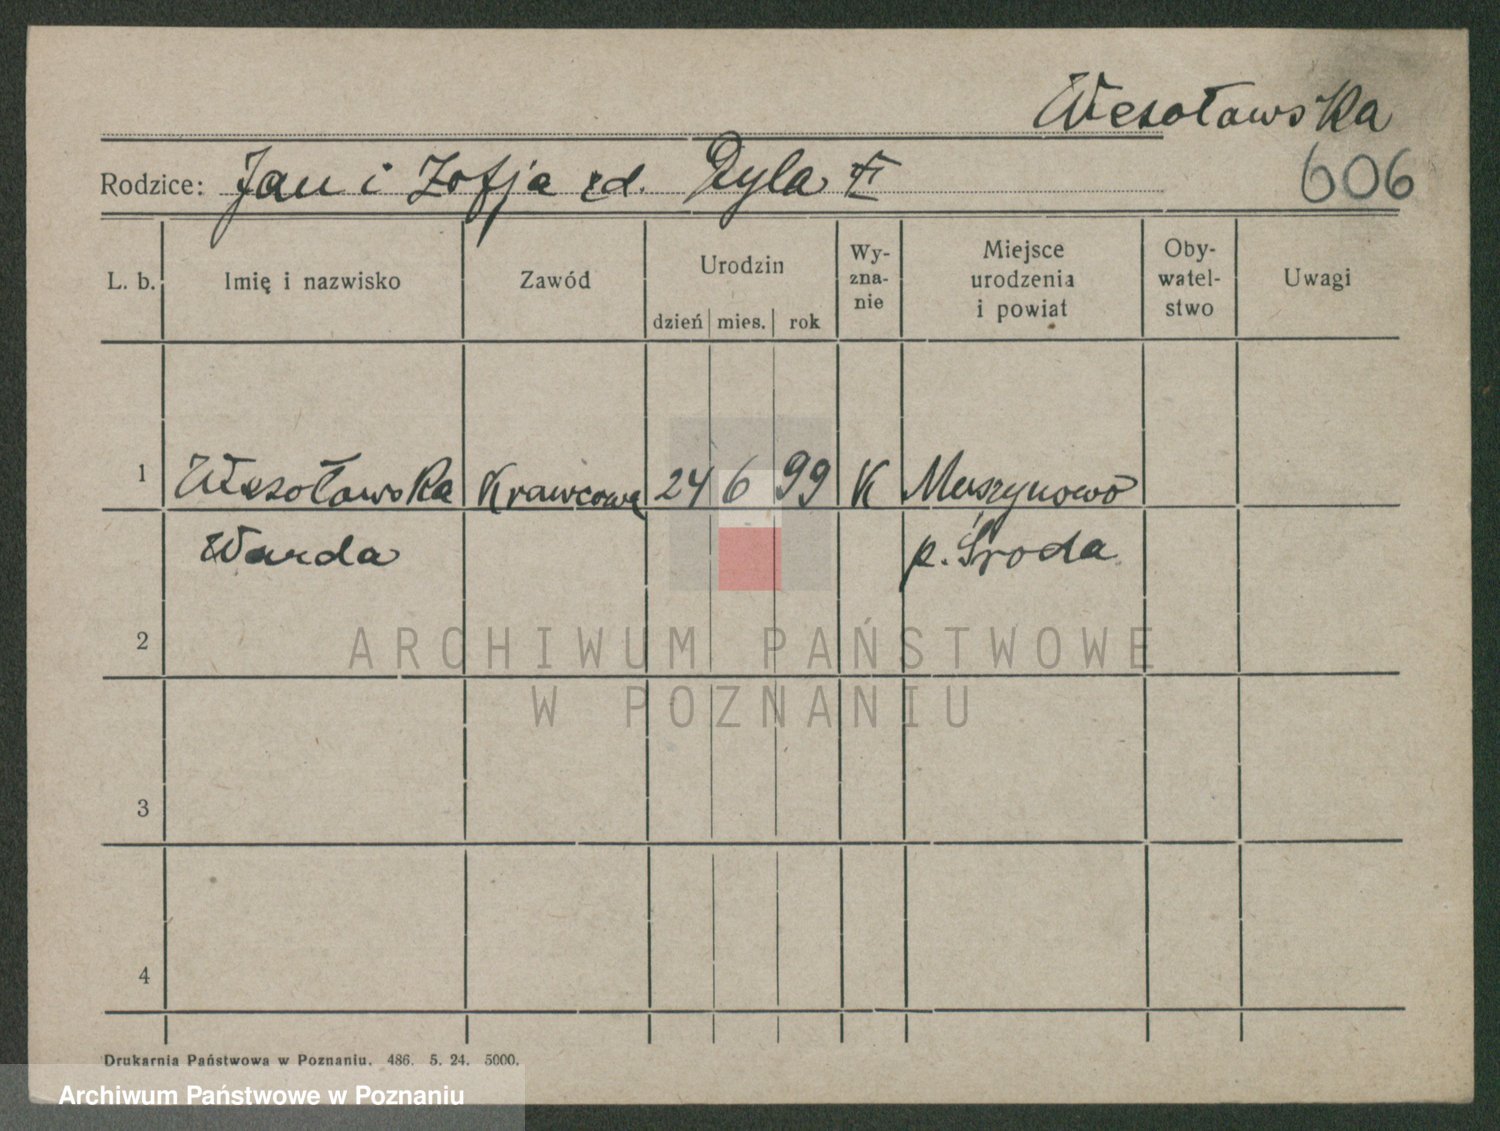 Wesoławska
606
Rodzice: Jan i Zofja zd. Dyla
L. b. Imię i nazwisko Zawód Urodzin dzień mies. rok Wy-zna-nie Miejsce urodzenia i powiat Oby-watel-stwo Uwagi
1 Wesoławska Krawcowa 24 6 99 K Muszynowo
Wanda p. Środa
2
ARCHIWUM PAŃSTWOWE
W POZNANIU
3
4
Drukarnia Państwowa w Poznaniu. 486. 5. 24. 5000.
Archiwum Państwowe w Poznaniu